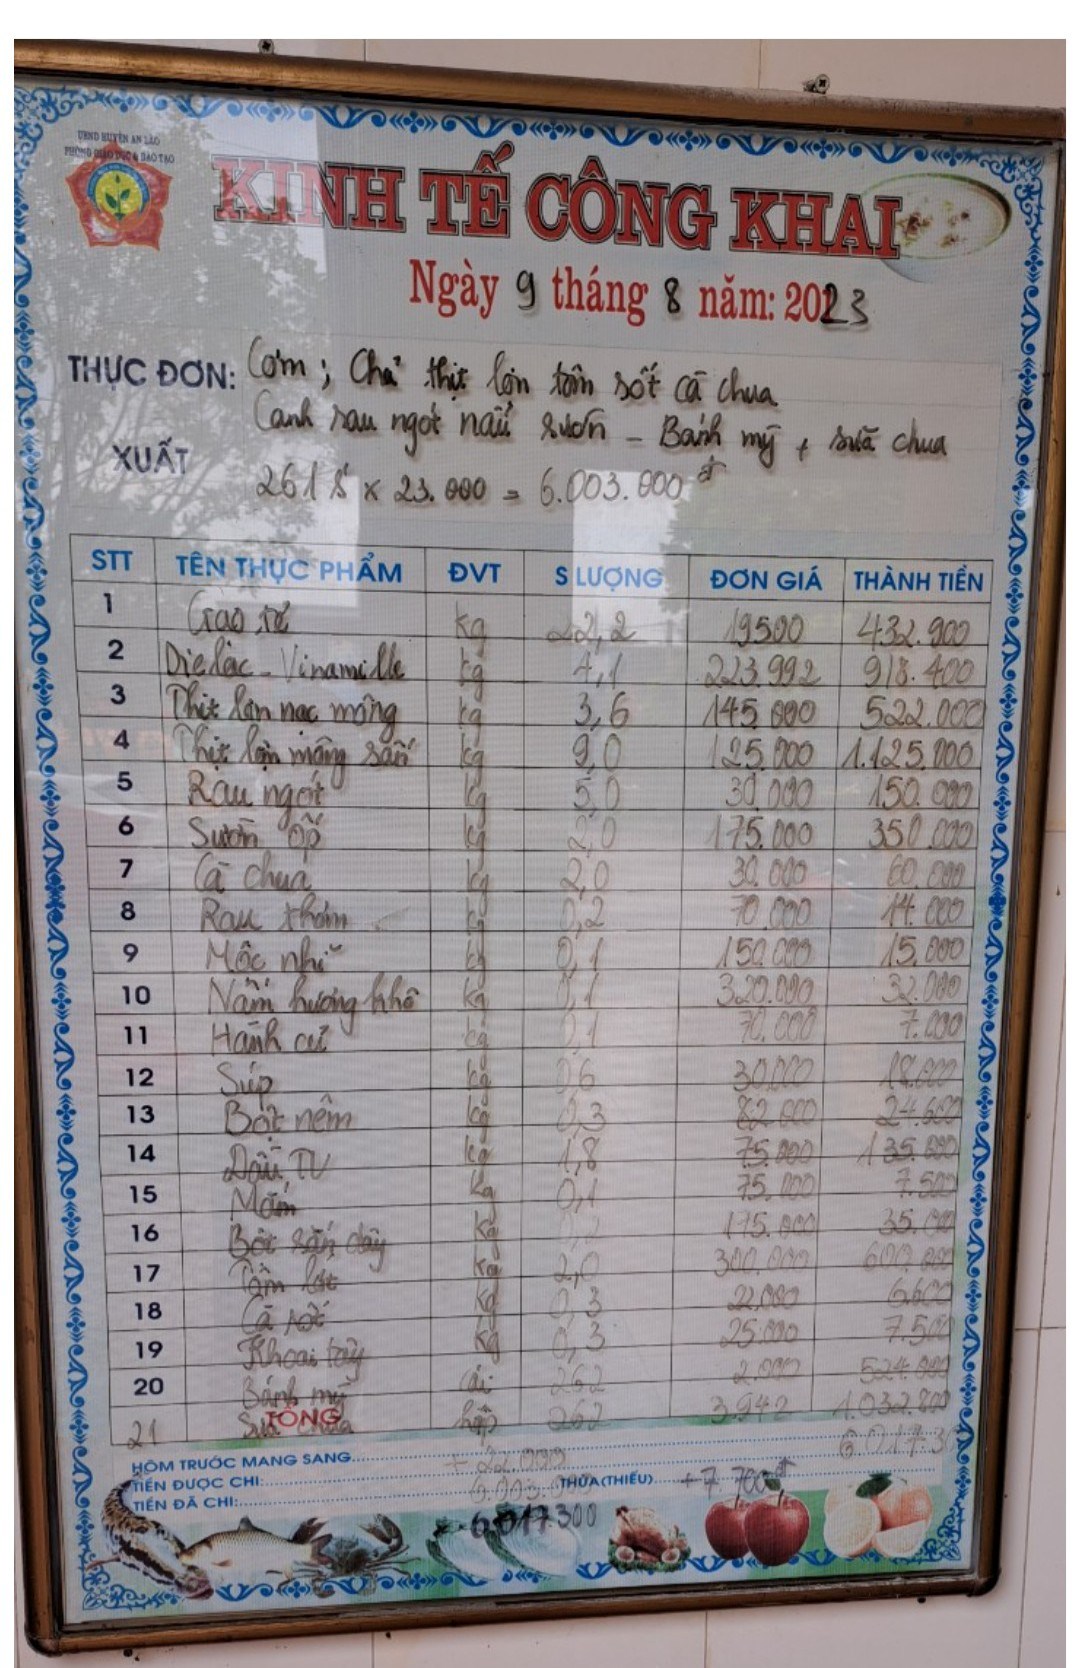 UBND HUYỆN AN LÃO
PHÒNG GIÁO DỤC & ĐÀO TẠO
KINH TẾ CÔNG KHAI
Ngày 9 tháng 8 năm: 2023
THỰC ĐƠN: Cơm ; Chả thịt lợn tôm sốt cà chua
Canh rau ngót nấu sườn - Bánh mỳ + sữa chua
XUẤT 261 S x 23.000 = 6.003.000 đ
STT TÊN THỰC PHẨM ĐVT S LƯỢNG ĐƠN GIÁ THÀNH TIỀN
1 Gạo tẻ kg 22,2 19500 432.900
2 Dielac - Vinamilk kg 4,1 223.992 918.400
3 Thịt lợn nạc mông kg 3,6 145.000 522.000
4 Thịt lợn mông sấn kg 9,0 125.000 1.125.000
5 Rau ngót kg 5,0 30.000 150.000
6 Sườn ốp kg 2,0 175.000 350.000
7 Cà chua kg 2,0 30.000 60.000
8 Rau thơm kg 0,2 70.000 14.000
9 Mộc nhĩ kg 0,1 150.000 15.000
10 Nấm hương khô kg 0,1 320.000 32.000
11 Hành củ kg 0,1 70.000 7.000
12 Súp kg 0,6 30.000 18.000
13 Bột nêm kg 0,3 82.000 24.600
14 Dầu TV kg 1,8 75.000 135.000
15 Mắm kg 0,1 75.000 7.500
16 Bột sắn dây kg 0,2 175.000 35.000
17 Tôm lớt kg 2,0 300.000 600.000
18 Cà rốt kg 0,3 22.000 6.600
19 Khoai tây kg 0,3 25.000 7.500
20 Bánh mỳ cái 262 2.000 524.000
21 Sữa chua hộp 262 3.942 1.032.800
TỔNG 6.017.30
HÔM TRƯỚC MANG SANG + 22.000
TIỀN ĐƯỢC CHI: 6.003.0 THỪA(THIẾU) +7.700 đ
TIỀN ĐÃ CHI: 6.017.300